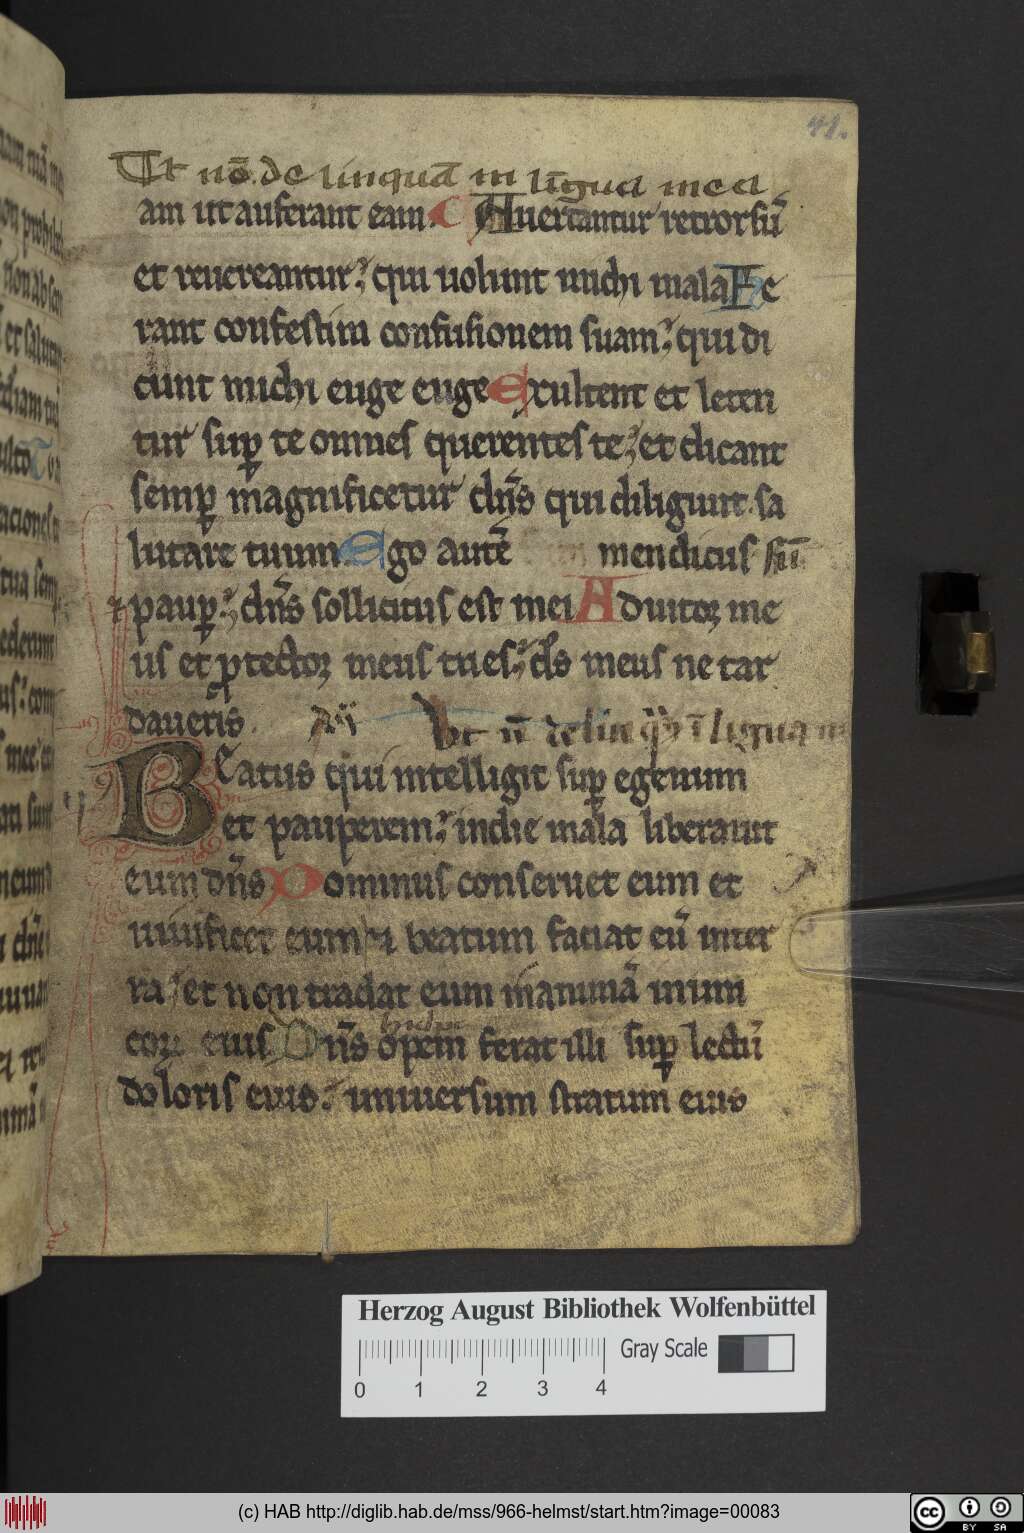 41.
Ut nō. de linquā in līgua mea
am ut auferant eam. Auertantur retrorsū
et reuereantur: qui uolunt michi mala Fe
rant confestim confusionem suam: qui di
cunt michi euge euge Exultent et leten
tur suꝑ te omnes querentes te: et dicant
semꝑ magnificetur dn̄s qui diligunt sa
lutare tuum Ego autē mendicus sū
⁊ pauꝑ: dn̄s sollicitus est mei Adiutoꝝ me
us et ꝓtectoꝝ meus tu es: ds̄ meus ne tar
daueris.
Ut n̄ delinq̄ ī ligua m
BEatus qui intelligit suꝑ egenum
et pauperem: in die mala liberauit
eum dn̄s Dominus conseruet eum et
uiuificet eum ⁊ beatum faciat eū in ter
ra: et non tradat eum in animā inimi
coꝝ eius Dn̄s opem ferat illi suꝑ lectū
doloris eius: uniuersum stratum eius
Herzog August Bibliothek Wolfenbüttel
0 1 2 3 4 Gray Scale
(c) HAB http://diglib.hab.de/mss/966-helmst/start.htm?image=00083
cc BY SA